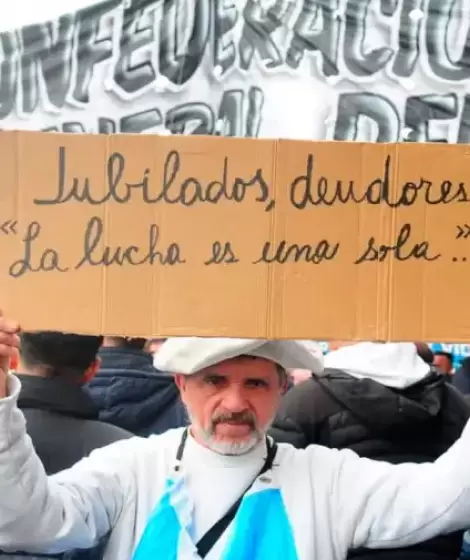 CONFEDERACIÓN
GENERAL DEL
Jubilados, deudores
"La lucha es una sola..."